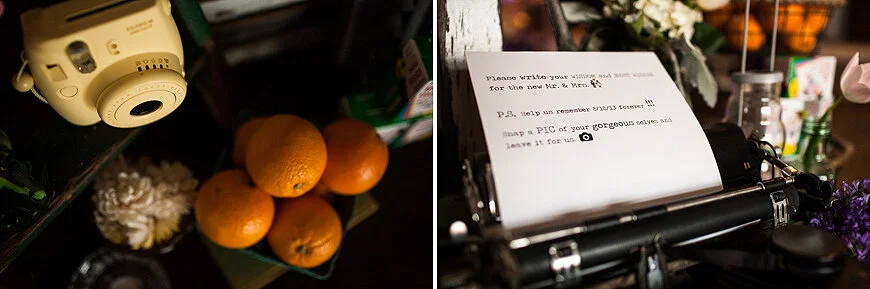 FUJIFILM
Please write your WISDOM and BEST WISHES
for the new Mr. & Mrs.
P.S. Help us remember 5/18/13 forever !!!
Snap a PIC of your gorgeous selves and
leave it for us.